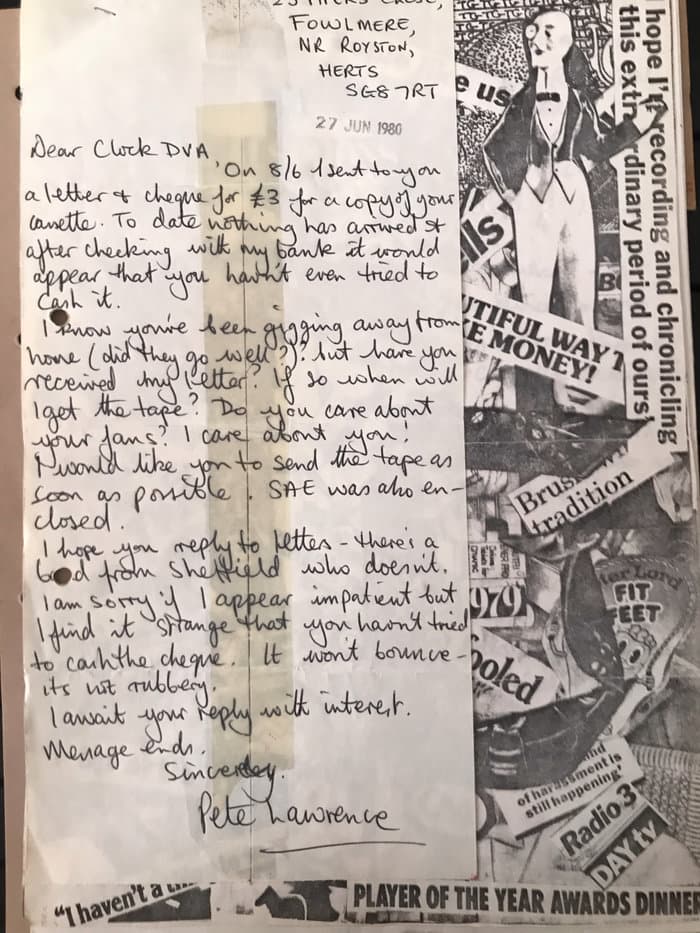 FOWLMERE,
NR ROYSTON,
HERTS
SG8 7RT
27 JUN 1980
Dear Clock DVA,
On 8/6 I sent to you
a letter & cheque for £3 for a copy of your
cassette. To date nothing has arrived &
after checking with my bank it would
appear that you havn't even tried to
cash it.
I know you've been gigging away from
home (did they go well?) but have you
received my letter? If so when will
I get the tape? Do you care about
your fans? I care about you!
I would like you to send the tape as
soon as possible. SAE was also en-
closed.
I hope you reply to letters - there's a
band from Sheffield who doesn't.
I am sorry if I appear impatient but
I find it strange that you havn't tried
to cash the cheque. It won't bounce -
its not rubbery.
I await your reply with interest.
Message ends.
Sincerely.
Pete Lawrence
I hope I'm recording and chronicling
this extraordinary period of ours!
e us
lls
UTIFUL WAY T
E MONEY!
tradition
1979
FIT
FEET
ooled
of harassment is
still happening'
Radio 3
DAY tv
"I haven't a
PLAYER OF THE YEAR AWARDS DINNER